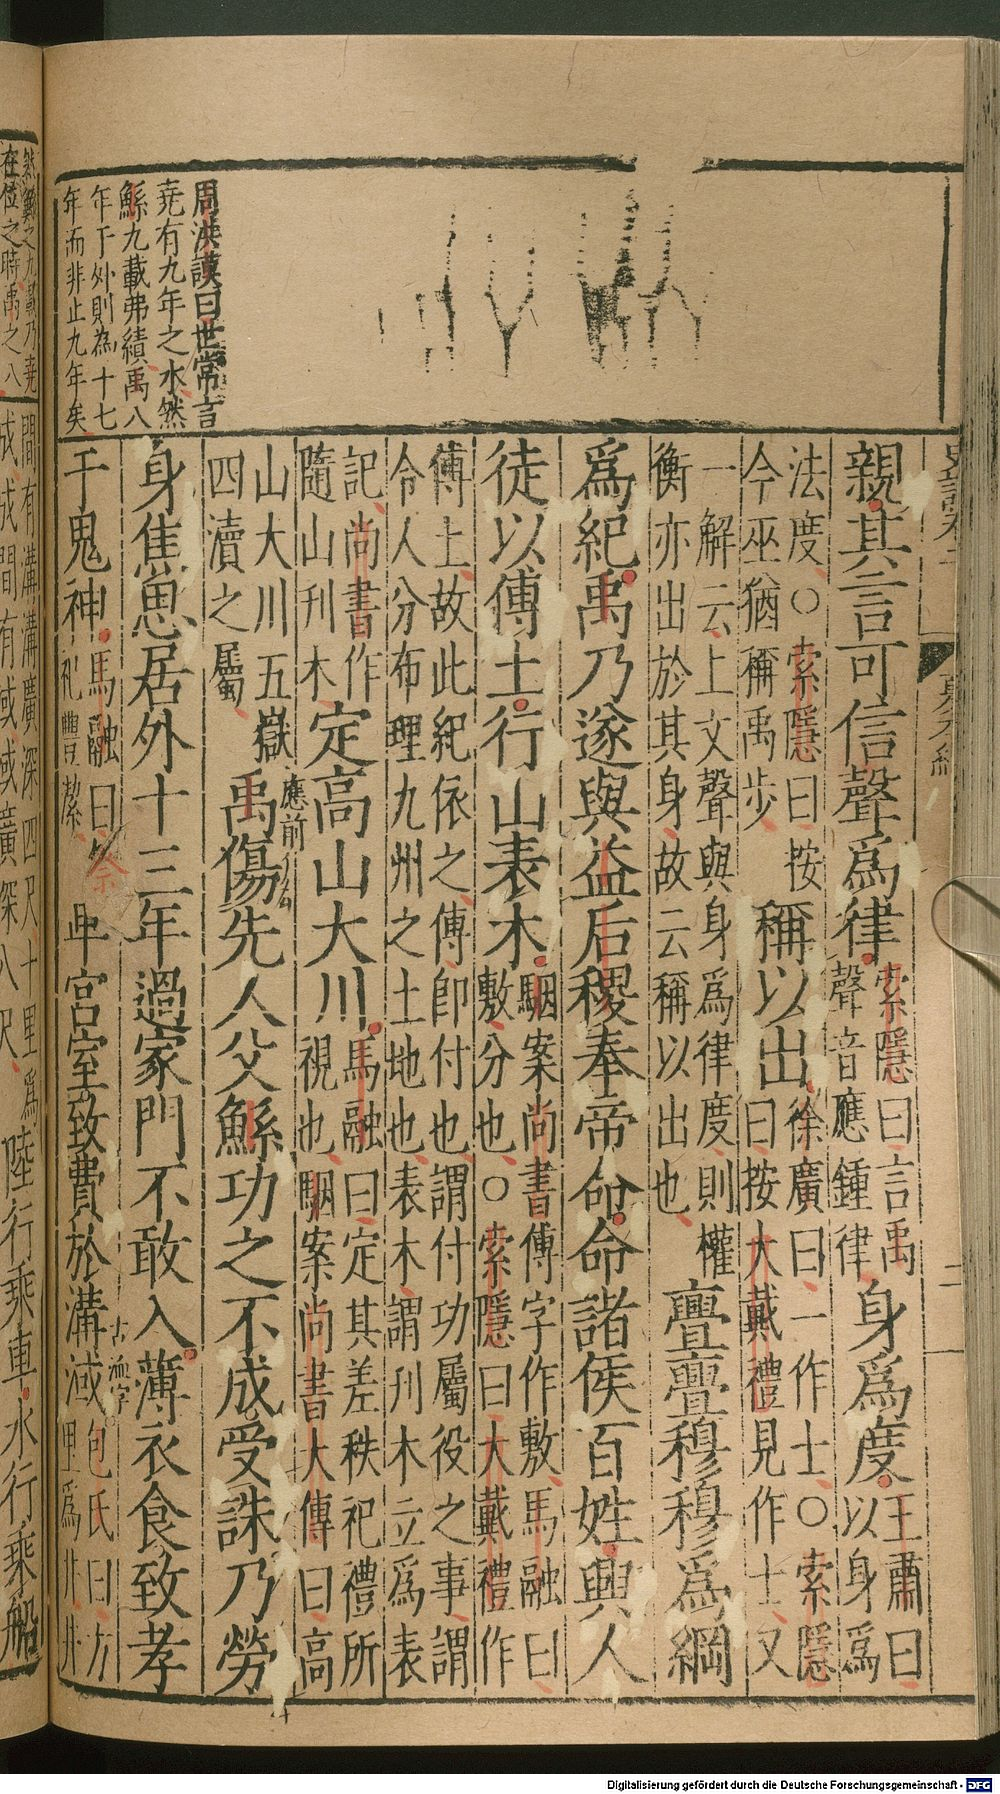 周洪謨曰世常言
堯有九年之水然
鯀九載弗績禹八
年于外則為十七
年而非止九年矣
然鯀之九載乃堯
在位之時禹之八
親其言可信聲爲律索隱曰言禹聲音應鍾律身爲度王肅曰以身爲
法度○索隱曰按今巫猶稱禹步稱以出徐廣曰一作士○索隱曰按大戴禮見作士又
一解云上文聲與身爲律度則權衡亦出於其身故云稱以出也亹亹穆穆爲綱
爲紀禹乃遂與益后稷奉帝命命諸侯百姓興人
徒以傅土行山表木駰案尚書傅字作敷馬融曰敷分也○索隱曰大戴禮作
傅土故此紀依之傅即付也謂付功屬役之事謂令人分布理九州之土地也表木謂刊木立爲表
記尚書作隨山刊木定高山大川馬融曰定其差秩祀禮所視也駰案尚書大傳曰高
山大川五嶽四瀆之屬禹傷先人父鯀功之不成受誅乃勞
應前
身焦思居外十三年過家門不敢入薄衣食致孝
于鬼神馬融曰祭祀豐絜卑宮室致費於溝淢包氏曰方里爲井井
古洫字
間有溝溝廣深四尺十里爲成成間有淢淢廣深八尺陸行乘車水行乘船
史記卷二
夏本紀
二
Digitalisierung gefördert durch die Deutsche Forschungsgemeinschaft - DFG